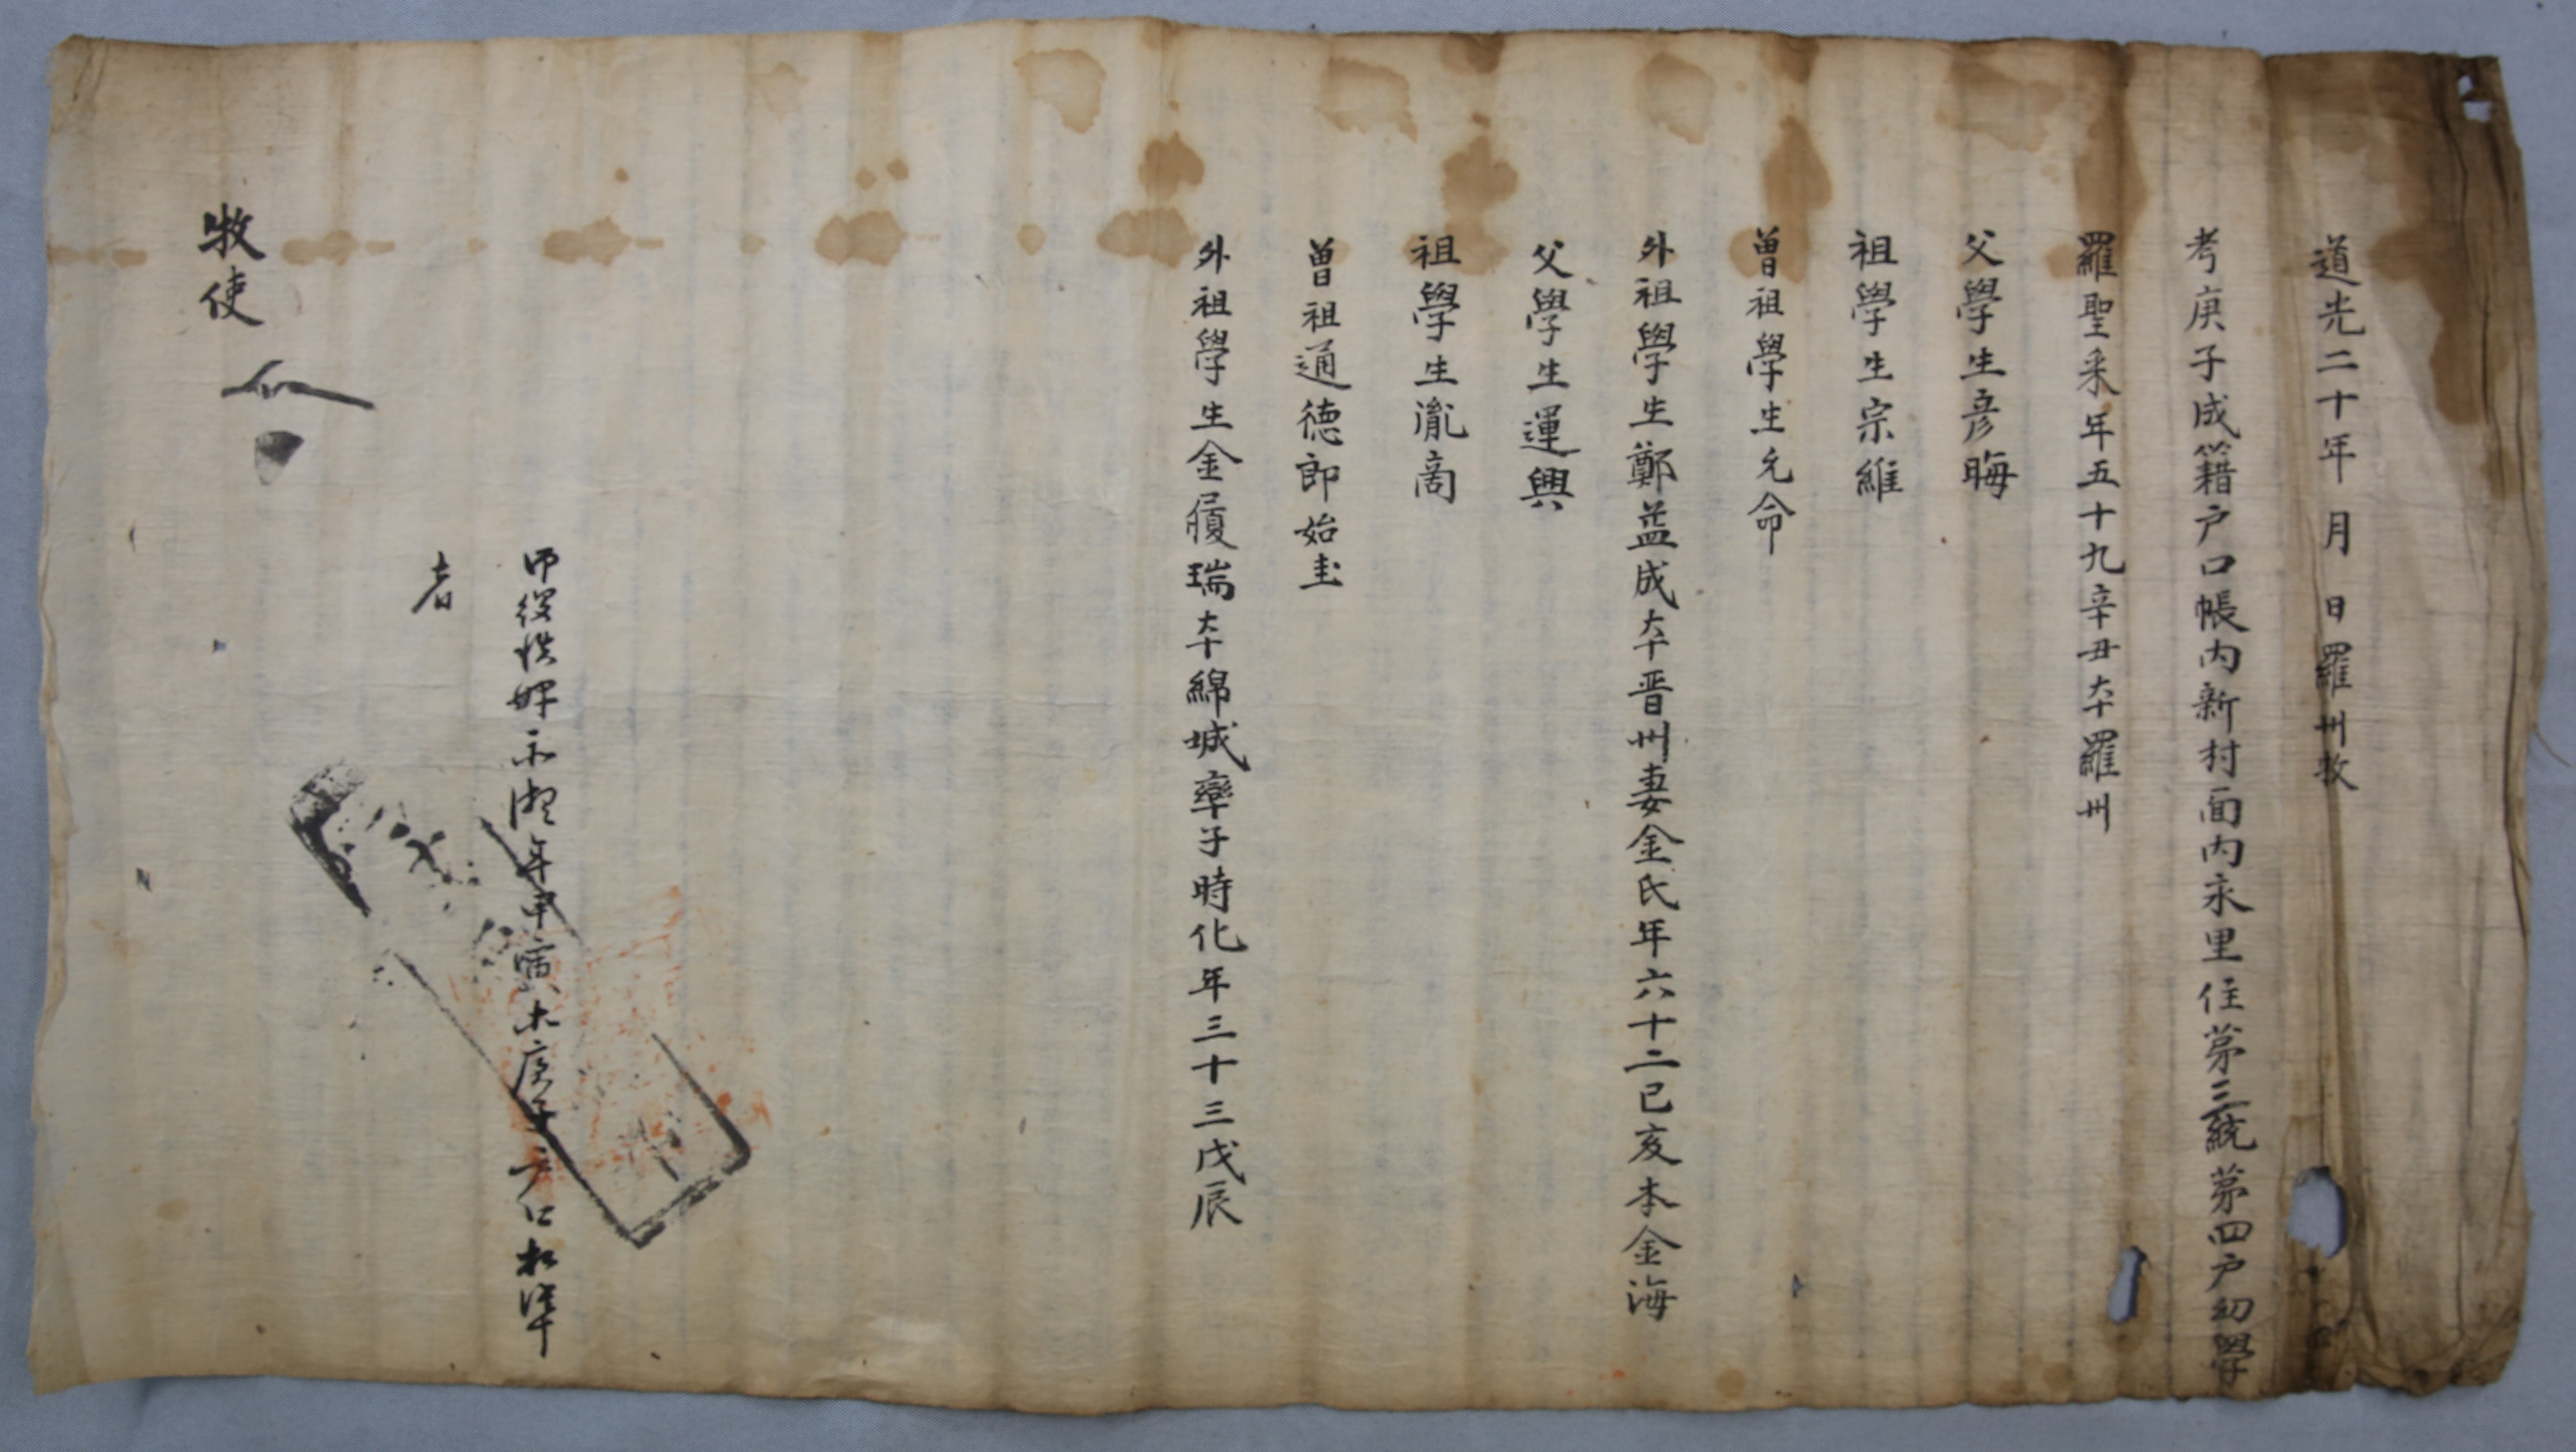 道光二十年 月 日羅州牧
考庚子成籍户口帳內新村面內永里住苐三統苐四户幼學
羅聖采年五十九辛丑本羅州
父學生彦晦
祖學生宗維
曾祖學生允命
外祖學生鄭益成本晋州妻金氏年六十二己亥本金海
父學生運興
祖學生胤啇
曾祖通德郎始圭
外祖學生金履瑞本綿城率子時化年三十三戊辰
年甲寅 庚子
者
牧使